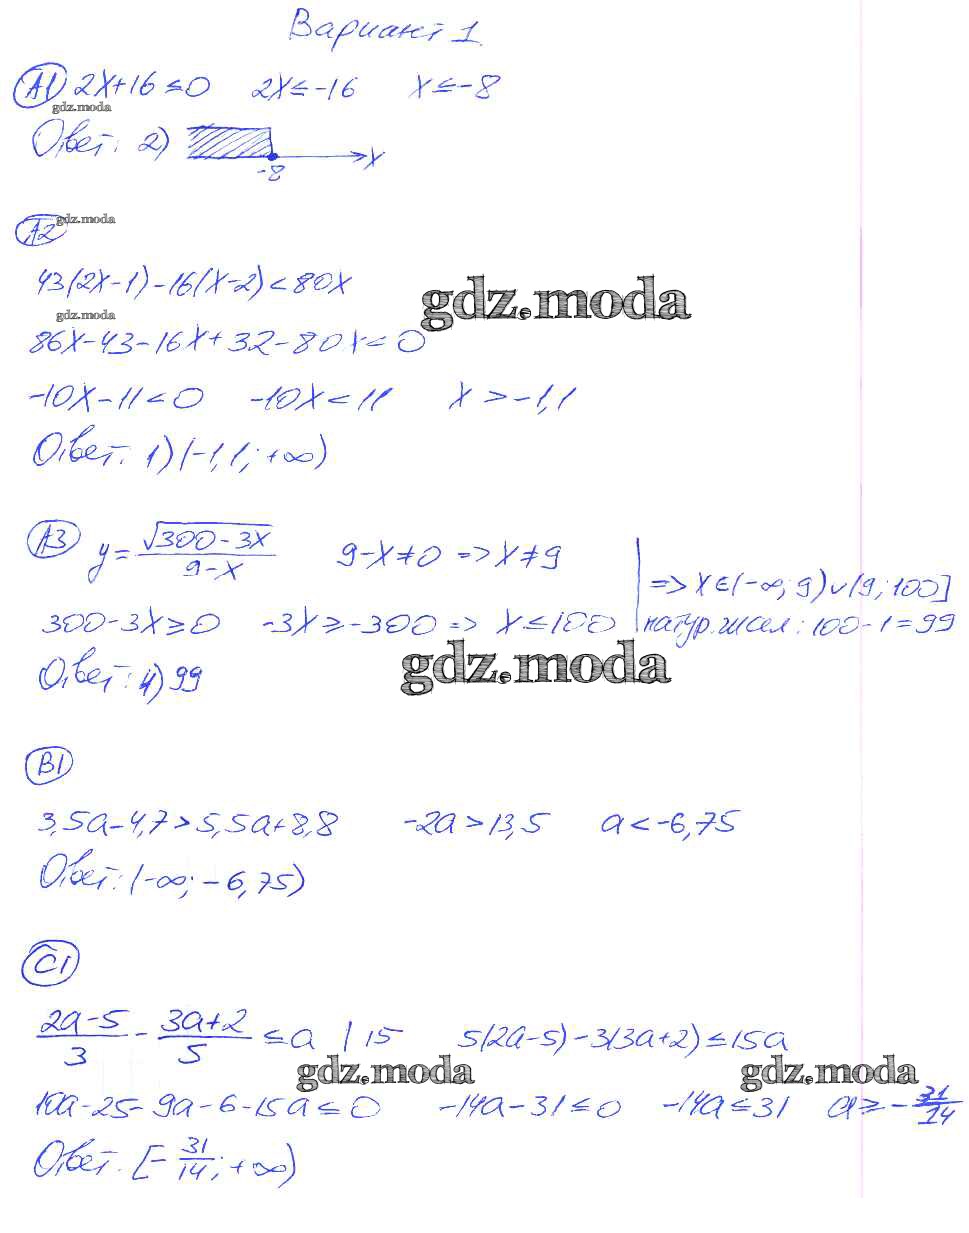 Вариант 1.
А1 2x+16≤0 2x≤-16 x≤-8
gdz.moda
Ответ: 2) x
-8
А2 gdz.moda
43(2x-1)-16(x-2)<80x
gdz.moda
gdz.moda
86x-43-16x+32-80x<0
-10x-11<0 -10x<11 x>-1,1
Ответ: 1) (-1,1; +∞)
А3 y=√(300-3x)/(9-x) 9-x≠0 => x≠9
=> x∈(-∞; 9)∪(9; 100]
300-3x≥0 -3x≥-300 => x≤100 натур. чисел: 100-1=99
gdz.moda
Ответ: 4) 99
В1
3,5a-4,7>5,5a+8,8 -2a>13,5 a<-6,75
Ответ: (-∞; -6,75)
С1
(2a-5)/3 - (3a+2)/5 ≤ a | 15 5(2a-5)-3(3a+2)≤15a
gdz.moda gdz.moda
10a-25-9a-6-15a≤0 -14a-31≤0 -14a≤31 a≥-31/14
Ответ: [-31/14; +∞)